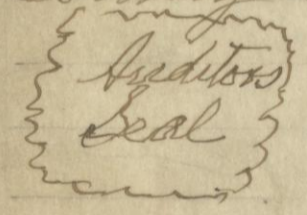 Auditors
Seal